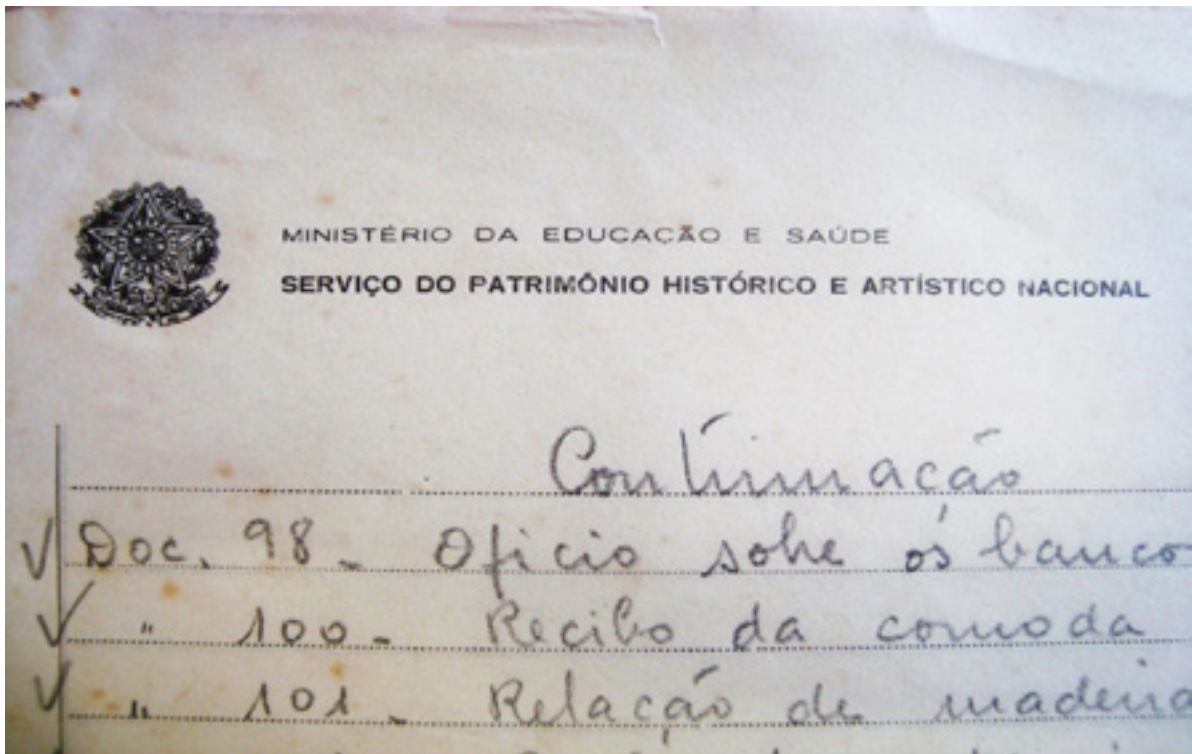 MINISTÉRIO DA EDUCAÇÃO E SAÚDE
SERVIÇO DO PATRIMÔNIO HISTÓRICO E ARTÍSTICO NACIONAL
Continuação
Doc. 98 - Oficio sobre os banco
" 100 - Recibo da comoda
" 101 - Relação de madeira